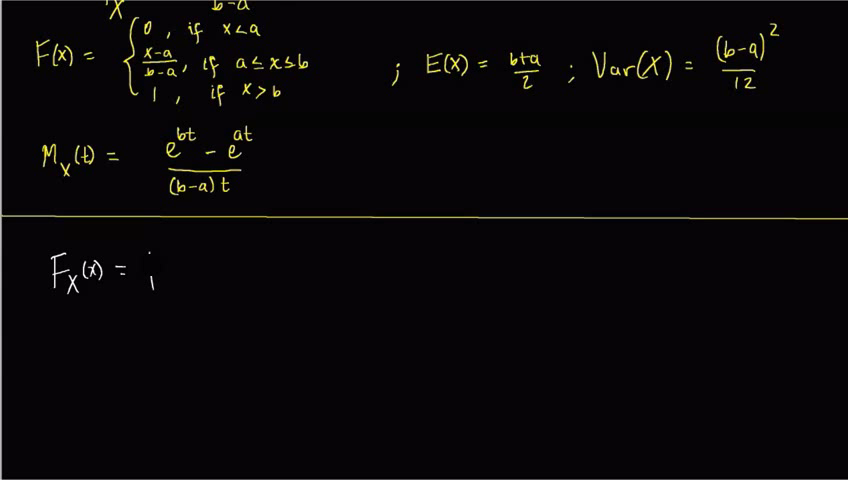 X b-a
F(x) = { 0, if x<a
x-a/b-a, if a≤x≤b
1, if x>b
; E(X) = b+a/2 ; Var(X) = (b-a)²/12
M_X(t) = e^bt - e^at / (b-a)t
F_X(x) =